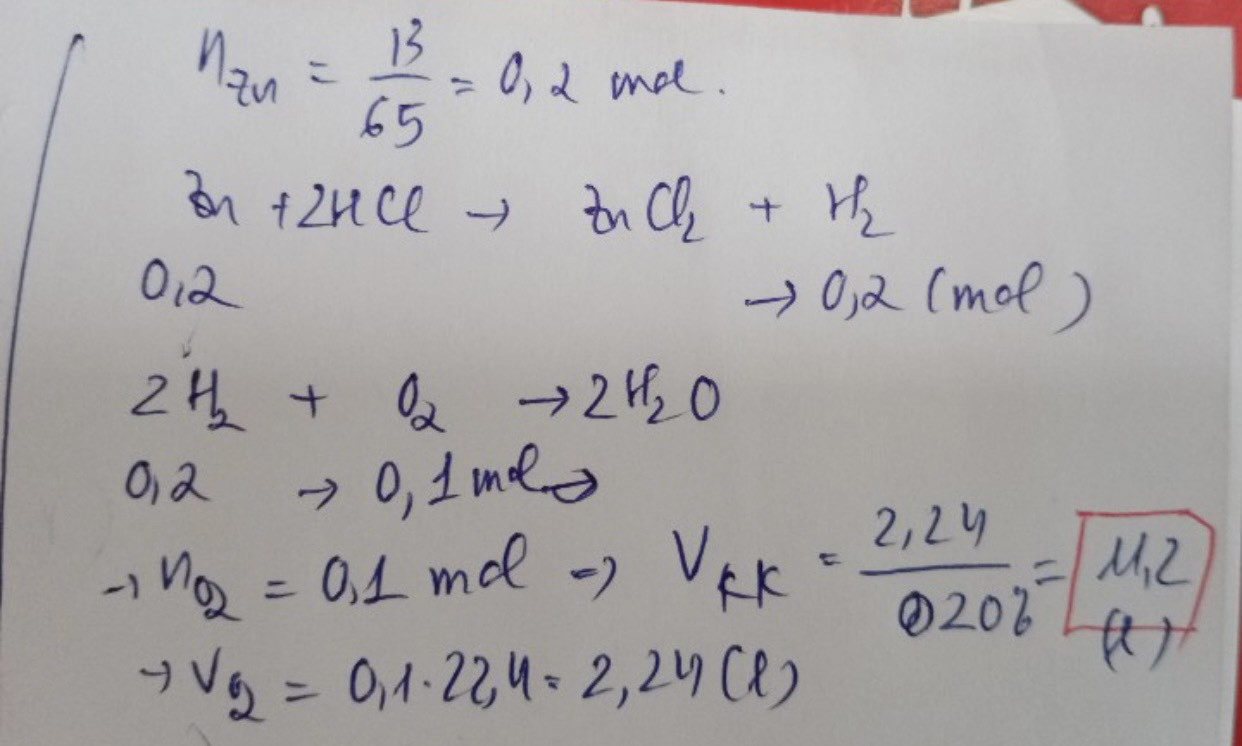 n_Zn = 13/65 = 0,2 mol.
Zn + 2HCl → ZnCl₂ + H₂
0,2 → 0,2 (mol)
2H₂ + O₂ → 2H₂O
0,2 → 0,1 mol →
→ n_O₂ = 0,1 mol → V_KK = 2,24/20% = 11,2 (l)
→ V_O₂ = 0,1.22,4 = 2,24 (l)